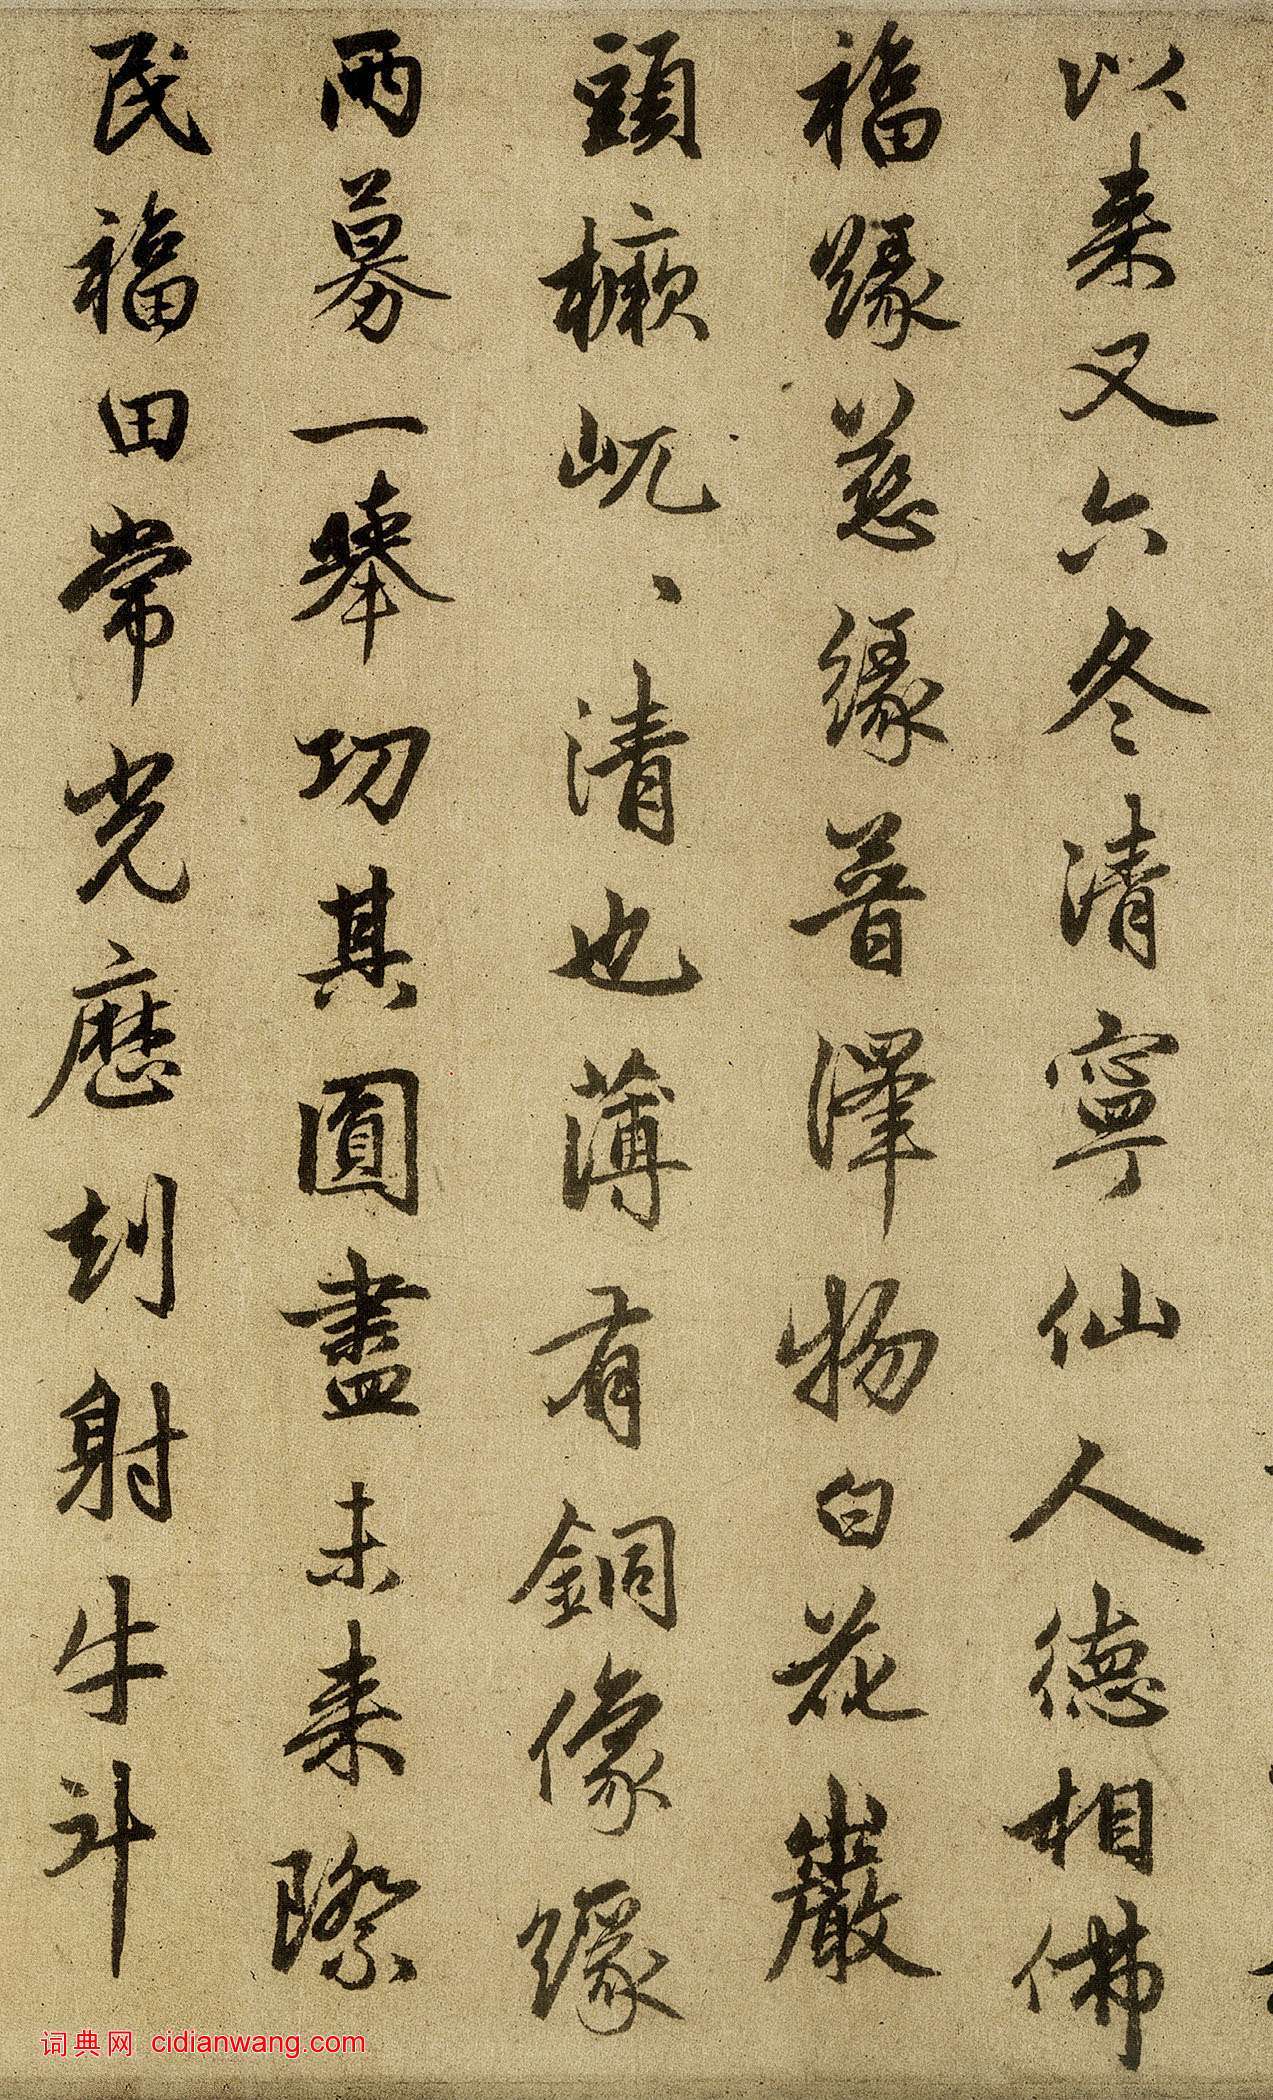 以来又六冬清寧仙人德相佛
福緣慈緣普澤物白花巖
頭橛屼々清也薄有銅像緣
兩募一舉功其圓盡未来際
民福田常光歷劫射牛斗
词典网 cidianwang.com